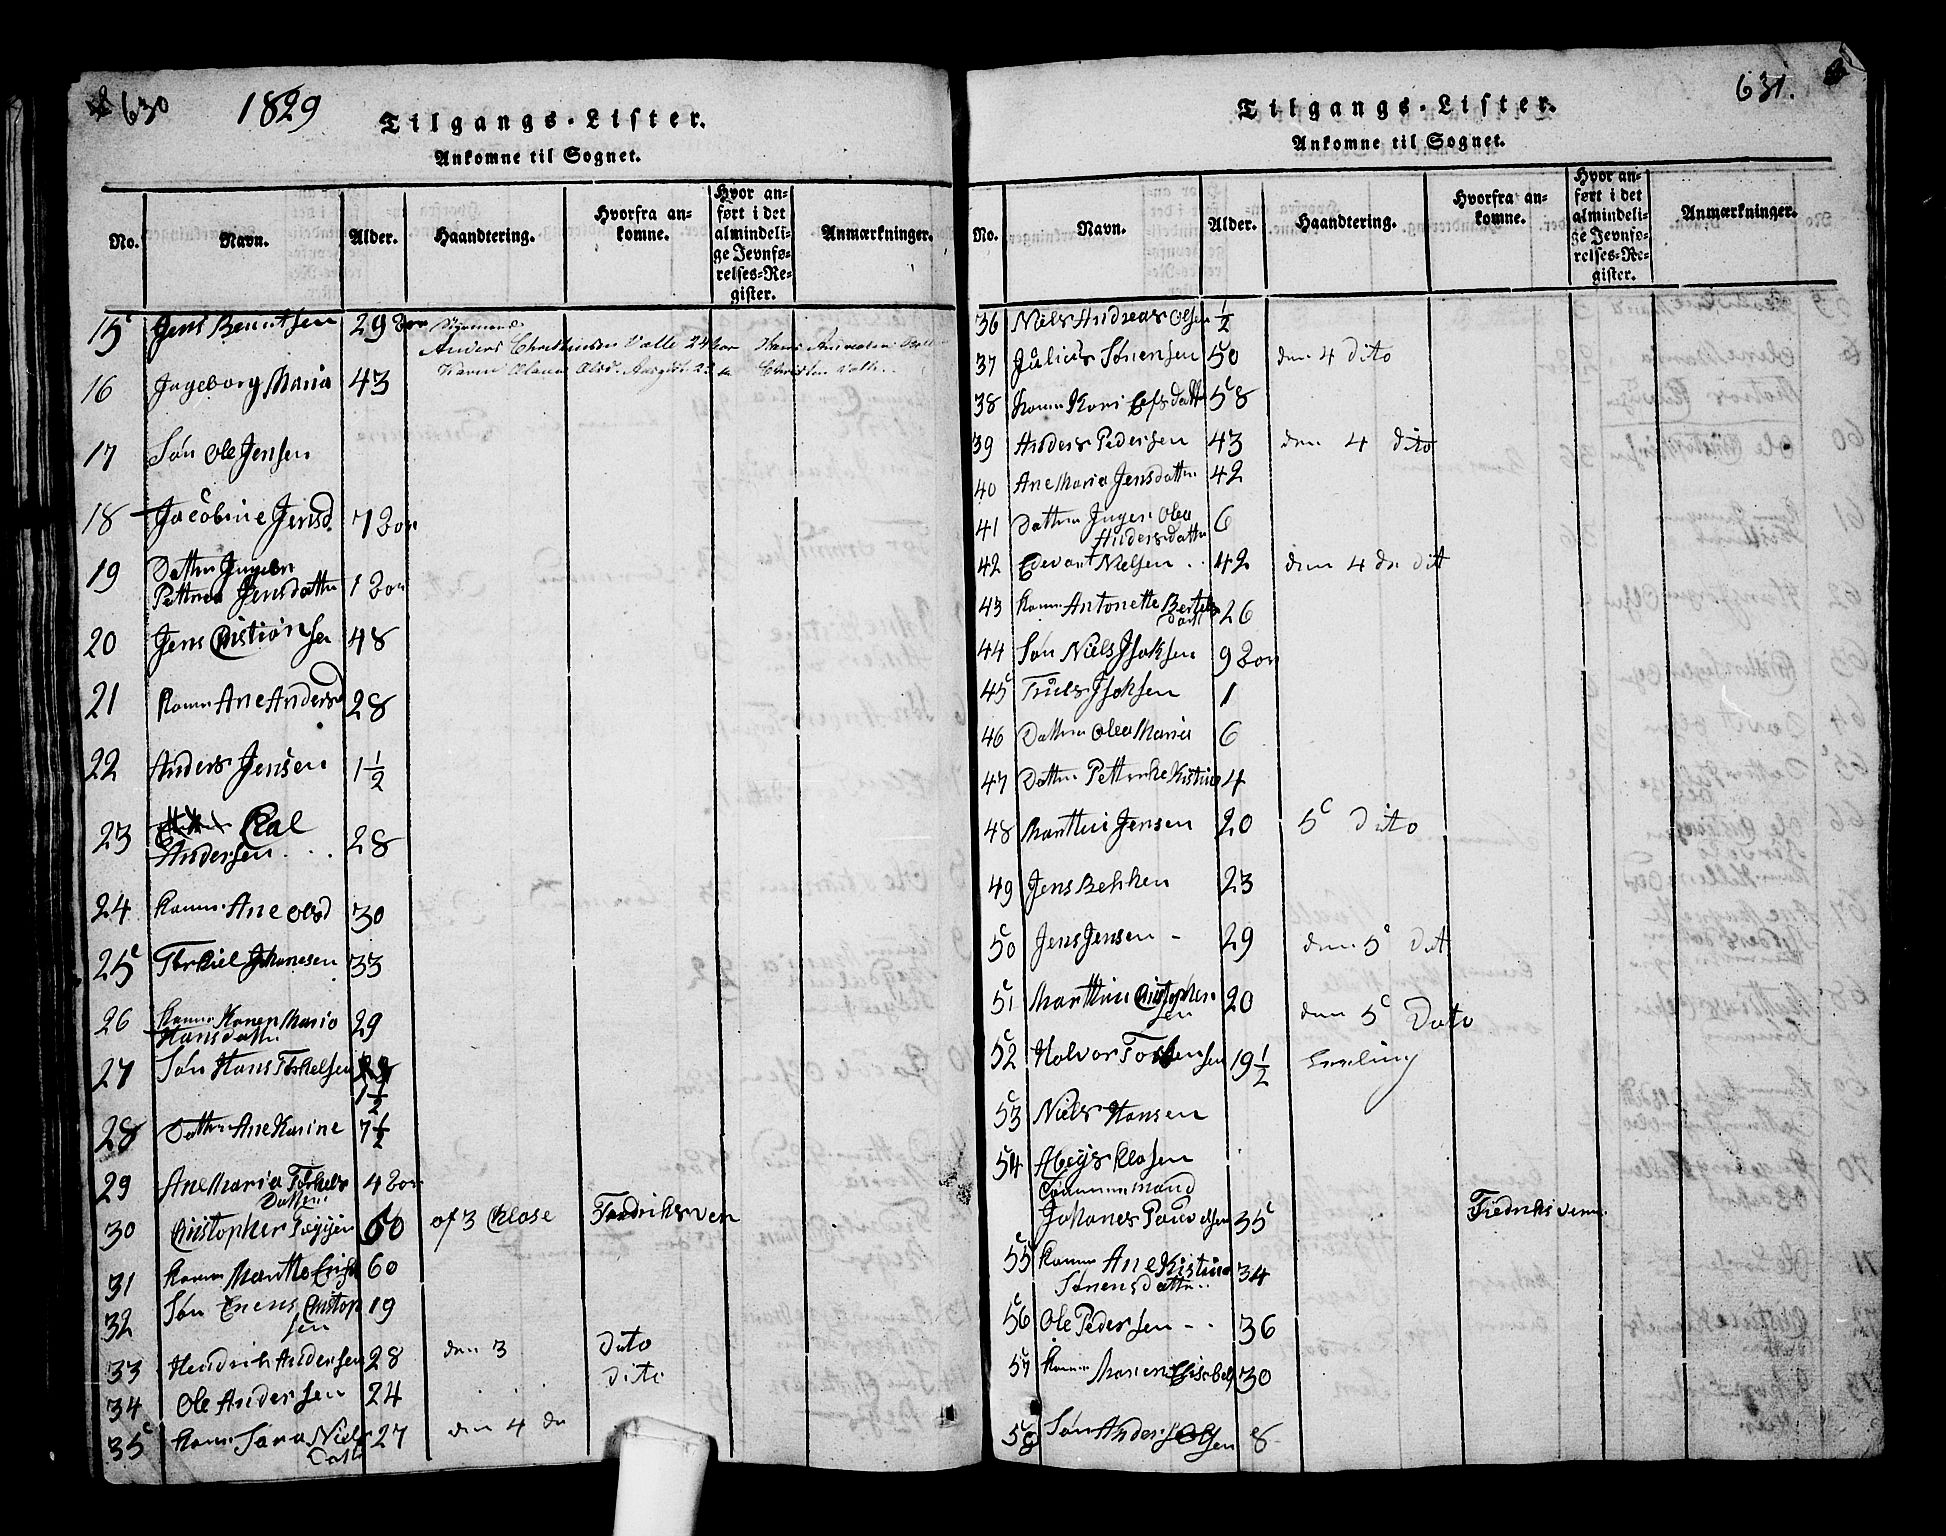 630 1829
Tilgangs-Lister.
Ankomne til Sognet.
No. Navn. Alder. Haandtering. Hvorfra ankomne. Hvor anført i det almindelige Jevnførelses-Register. Anmærkninger.
15 Jens Berntsen 29 Aar
Anders Christensen Valle 24 Aar
16 Ingeborg Maria 43
17 Søn Ole Jensen
18 Jacobine Jensd. 7 Aar
19 Datter Ingebor
Pettrea Jensdatter 1 Aar
20 Jens Cristiansen 48
21 Kone Ane Andersd 28
22 Anders Jensen 1½
23 Kal
Andersen 28
24 Kone Ane Olsd 30
25 Torkiel Johanesen 33
26 Kone Karen Maria
Hansdatter 29
27 Søn Hans Torkelsen
1½
28 Datter Ane Karine 7½
29 Ane Maria Torkels
Datter 4 Aar
30 Cristopher 60 of 3 Klase Fredriksvern
31 Kone Marthe 60
32 Søn Cristop
sen 19
33 Hendrich Andersen 28 den 3 Dito
34 Ole Andersen 24 Dito
35 Kone Sara Niels
Datt 27 den 4 de
631.
Tilgangs-Lister.
Ankomne til Sognet.
No. Navn. Alder. Haandtering. Hvorfra ankomne. Hvor anført i det almindelige Jevnførelses-Register. Anmærkninger.
36 Niels Andreas Olsen ½
37 Julius Sørensen 50 den 4 dito
38 Kone Kari 58
39 Anders Pedersen 43 den 4 dito
40 Ane Maria Jensdatter 42
41 Datter Inger Olea
Andersdatter 6
42 Edevart Nielsen 42 den 4 de dit
43 Kone Antonette Bertels
Datt 26
44 Søn Niels Isaksen 9 Aar
45 Truls Isaksen 1
46 Datter Olea Maria 6
47 Datter Pettrike Kistine 4
48 Marthin Jensen 20 5 dito
49 Jens Bekken 23
50 Jens Jensen - 29 den 5 dit
51 Marthin Cristophersen 20 den 5 Dato
52 Halvor 19½
53 Niels Hansen
54 Klasen
Tømmermand
Johanes Pouvelsen 35 Fredriksvern
55 Kone Ane Kistine
Sørensdatter 34
56 Ole Pedersen - 36
57 Kone Maren Elisabet 30
58 Søn Anders Olsen 8